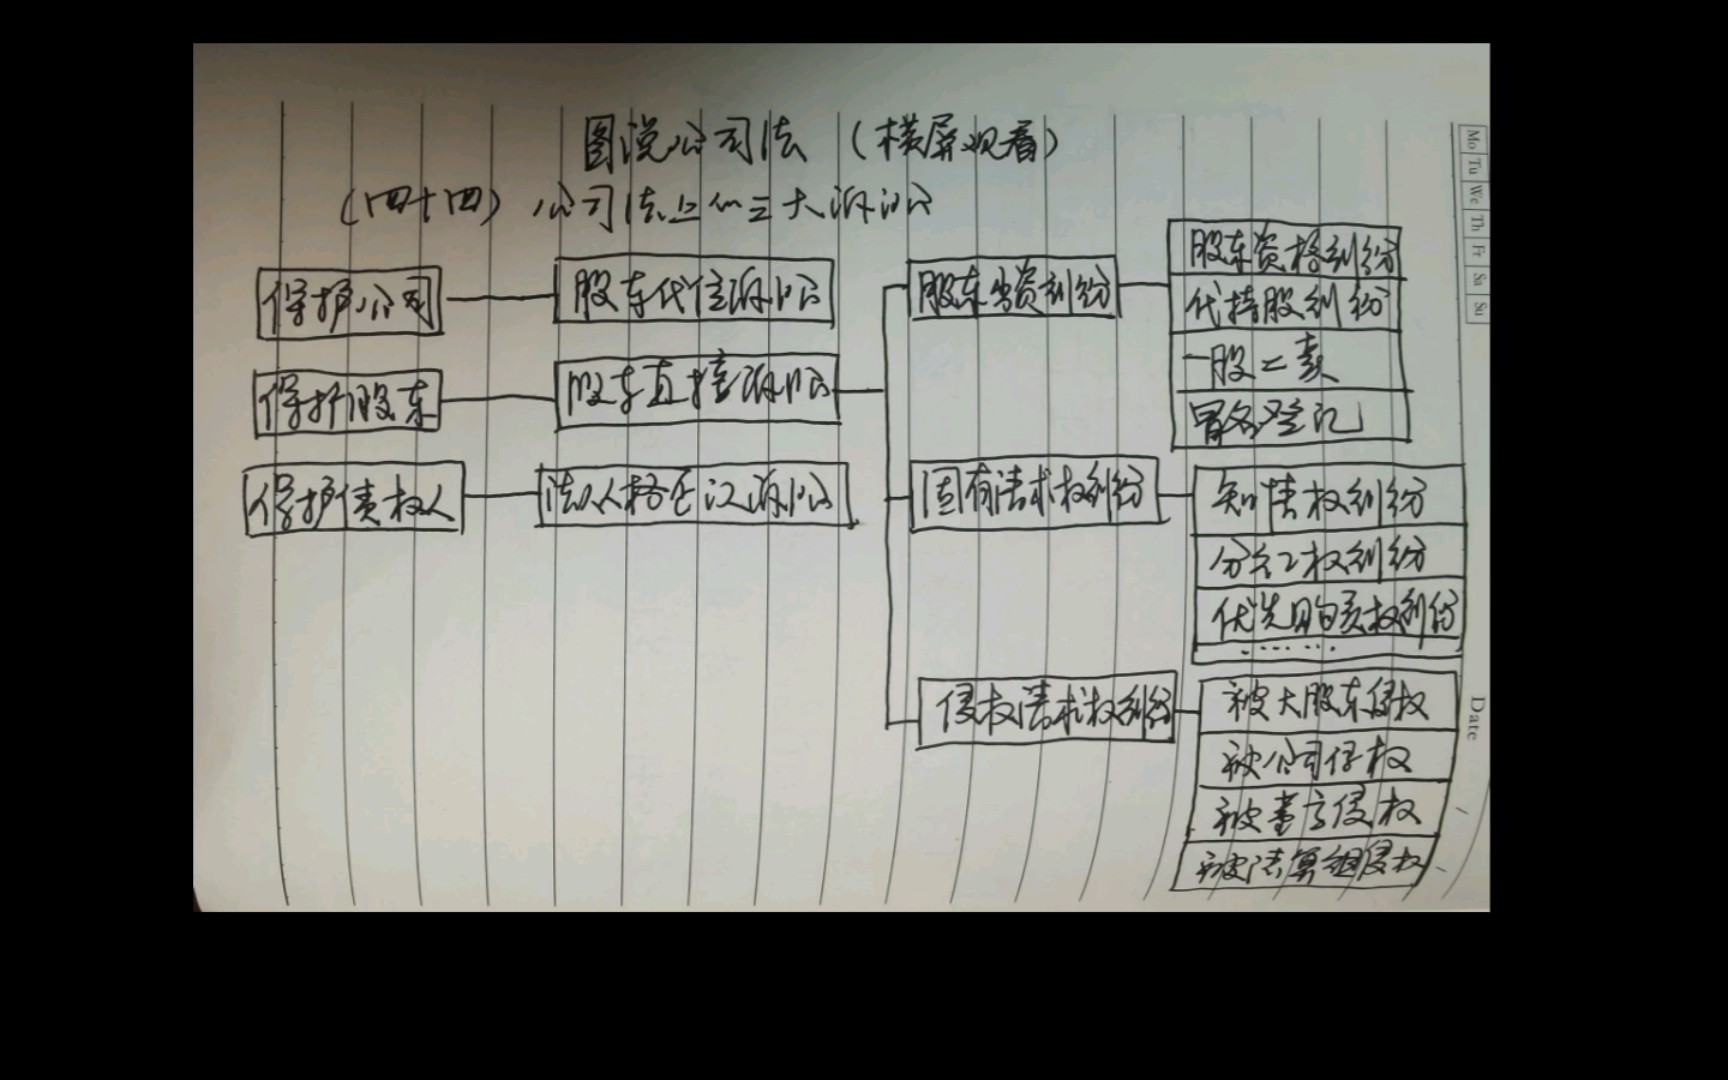 图说公司法（横屏观看）
（四十四）公司法上的三大诉讼
保护公司
股东代位诉讼
保护股东
股东直接诉讼
保护债权人
法人人格否认诉讼
股东出资纠纷
股东资格纠纷
代持股纠纷
一股二卖
冒名登记
固有请求权纠纷
知情权纠纷
分红权纠纷
优先购买权纠纷
……
侵权请求权纠纷
被大股东侵权
被公司侵权
被董高侵权
被清算组侵权
Mo Tu We Th Fr Sa Su
Date